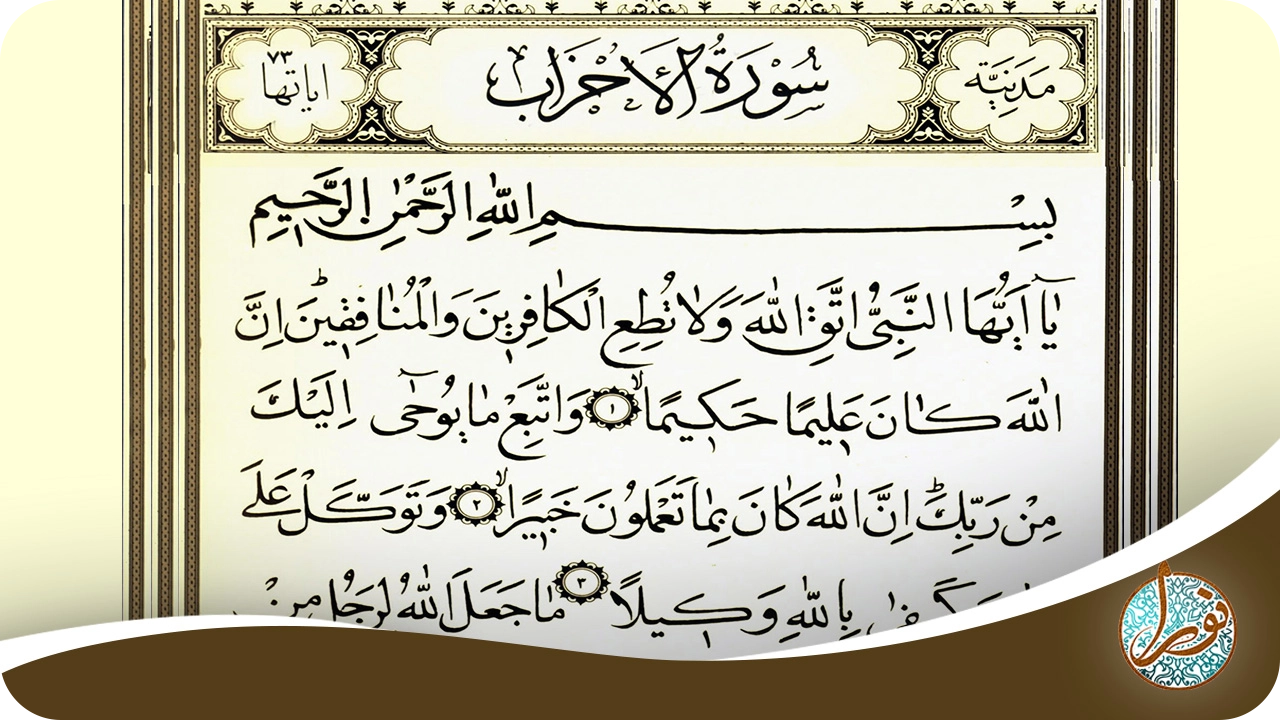 مَدَنِيَّة
سُورَةُ الْأَحْزَابِ
اياتها ٧٣
بِسْمِ اللّٰهِ الرَّحْمٰنِ الرَّحِيمِ
يَٓا اَيُّهَا النَّبِيُّ اتَّقِ اللّٰهَ وَلَا تُطِعِ الْكَافِرِينَ وَالْمُنَافِقِينَ اِنَّ
اللّٰهَ كَانَ عَلِيمًا حَكِيمًا ١ وَاتَّبِعْ مَا يُوحٰٓى اِلَيْكَ
مِنْ رَبِّكَ اِنَّ اللّٰهَ كَانَ بِمَا تَعْمَلُونَ خَبِيرًا ٢ وَتَوَكَّلْ عَلَى
بِاللّٰهِ وَكِيلًا ٣ مَا جَعَلَ اللّٰهُ لِرَجُلٍ مِنْ